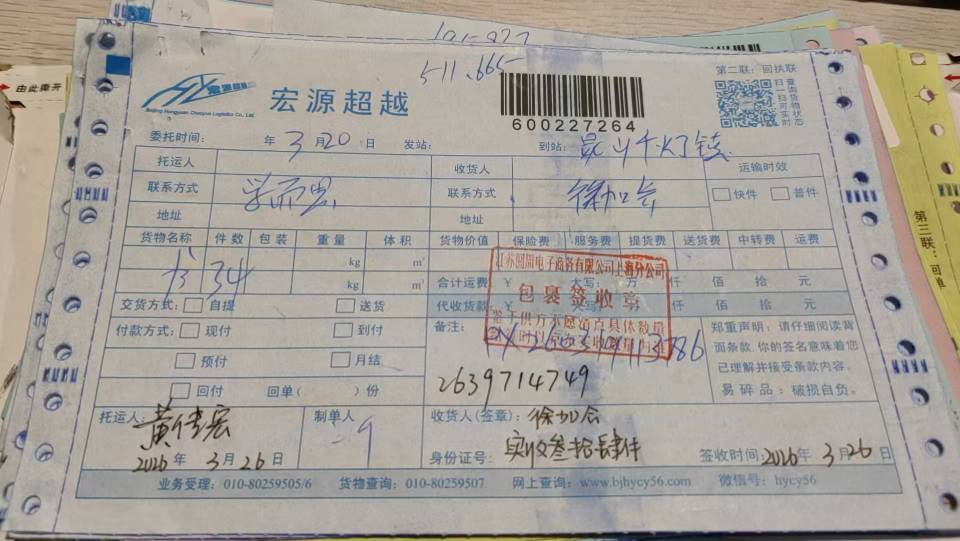 511.665
由此撕开
宏源超越
Beijing Hongyuan Chaoyue Logistics Co., Ltd.
600227264
第二联：回执联
扫一扫
查询货物
可实时状态
委托时间： 年 3月20日 发站： 到站：昆山千灯镇
托运人 收货人 运输时效
联系方式 学而思 联系方式 徐加会 快件 普件
地址 地址
货物名称 件数 包装 重量 体积 货物价值 保险费 服务费 提货费 送货费 中转费 运费
书 34 kg m³ 合计运费 ¥ 大写： 万 仟 佰 拾 元
kg m³ 代收货款 ¥ 大写： 仟 佰 拾 元
江苏圆周电子商务有限公司上海分公司
包裹签收章
交货方式： 自提 送货
付款方式： 现付 到付
预付 月结
回付 回单( )份
备注：
2639714749
郑重声明：请仔细阅读背
面条款，你的签名意味着您
已理解并接受条款内容。
易碎品：破损自负。
托运人： 制单人 收货人(签章)：徐加会
2026年3月26日 身份证号： 实收叁拾肆件 签收时间：2026年3月26日
业务受理：010-80259505/6 货物查询：010-80259507 网上查询：www.bjhycy56.com 微信号：hycy56
第三联：回单